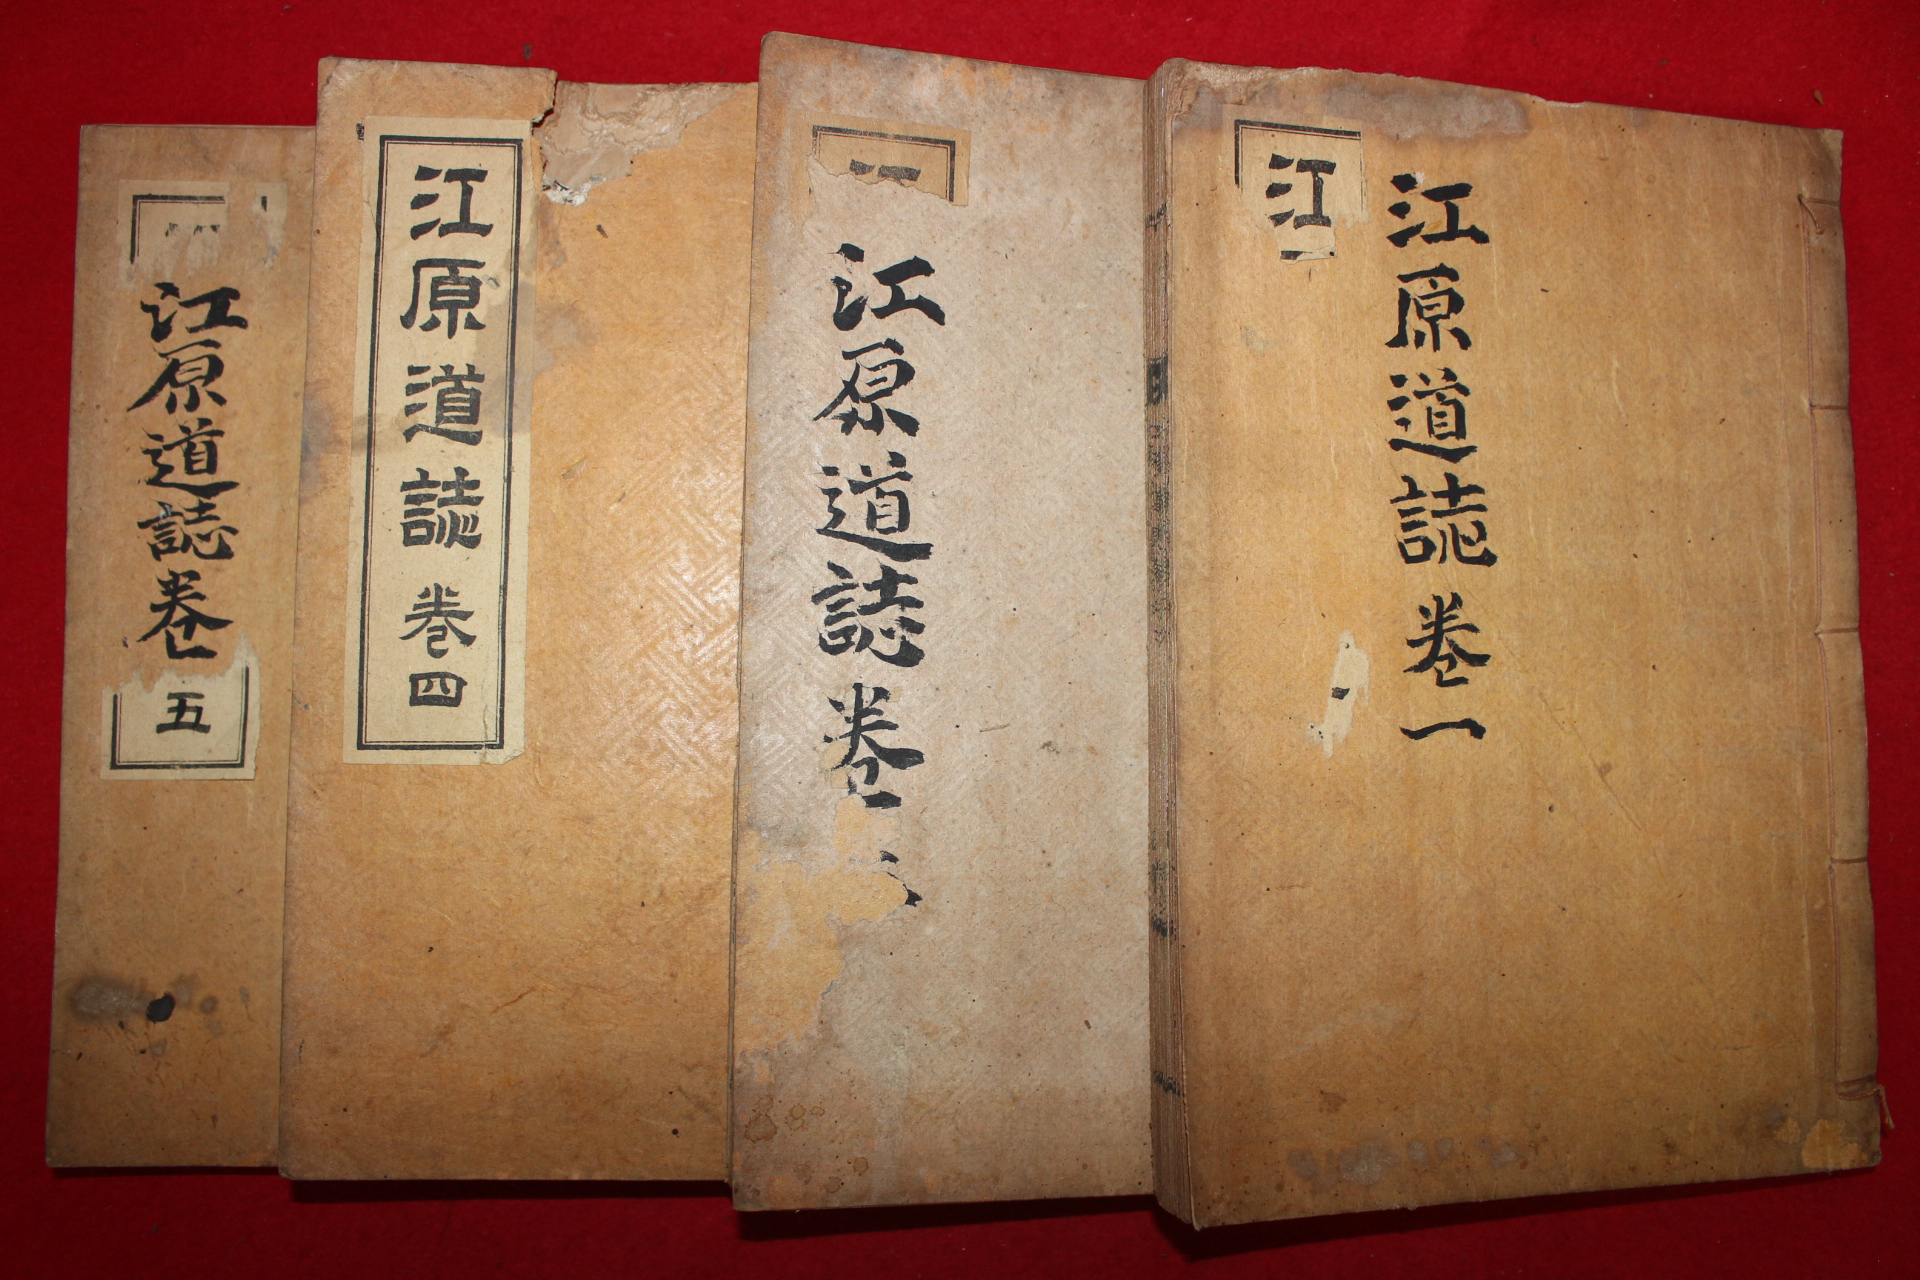 江
江原道誌卷一
江原道誌卷
江原道誌卷四
江原道誌卷
五